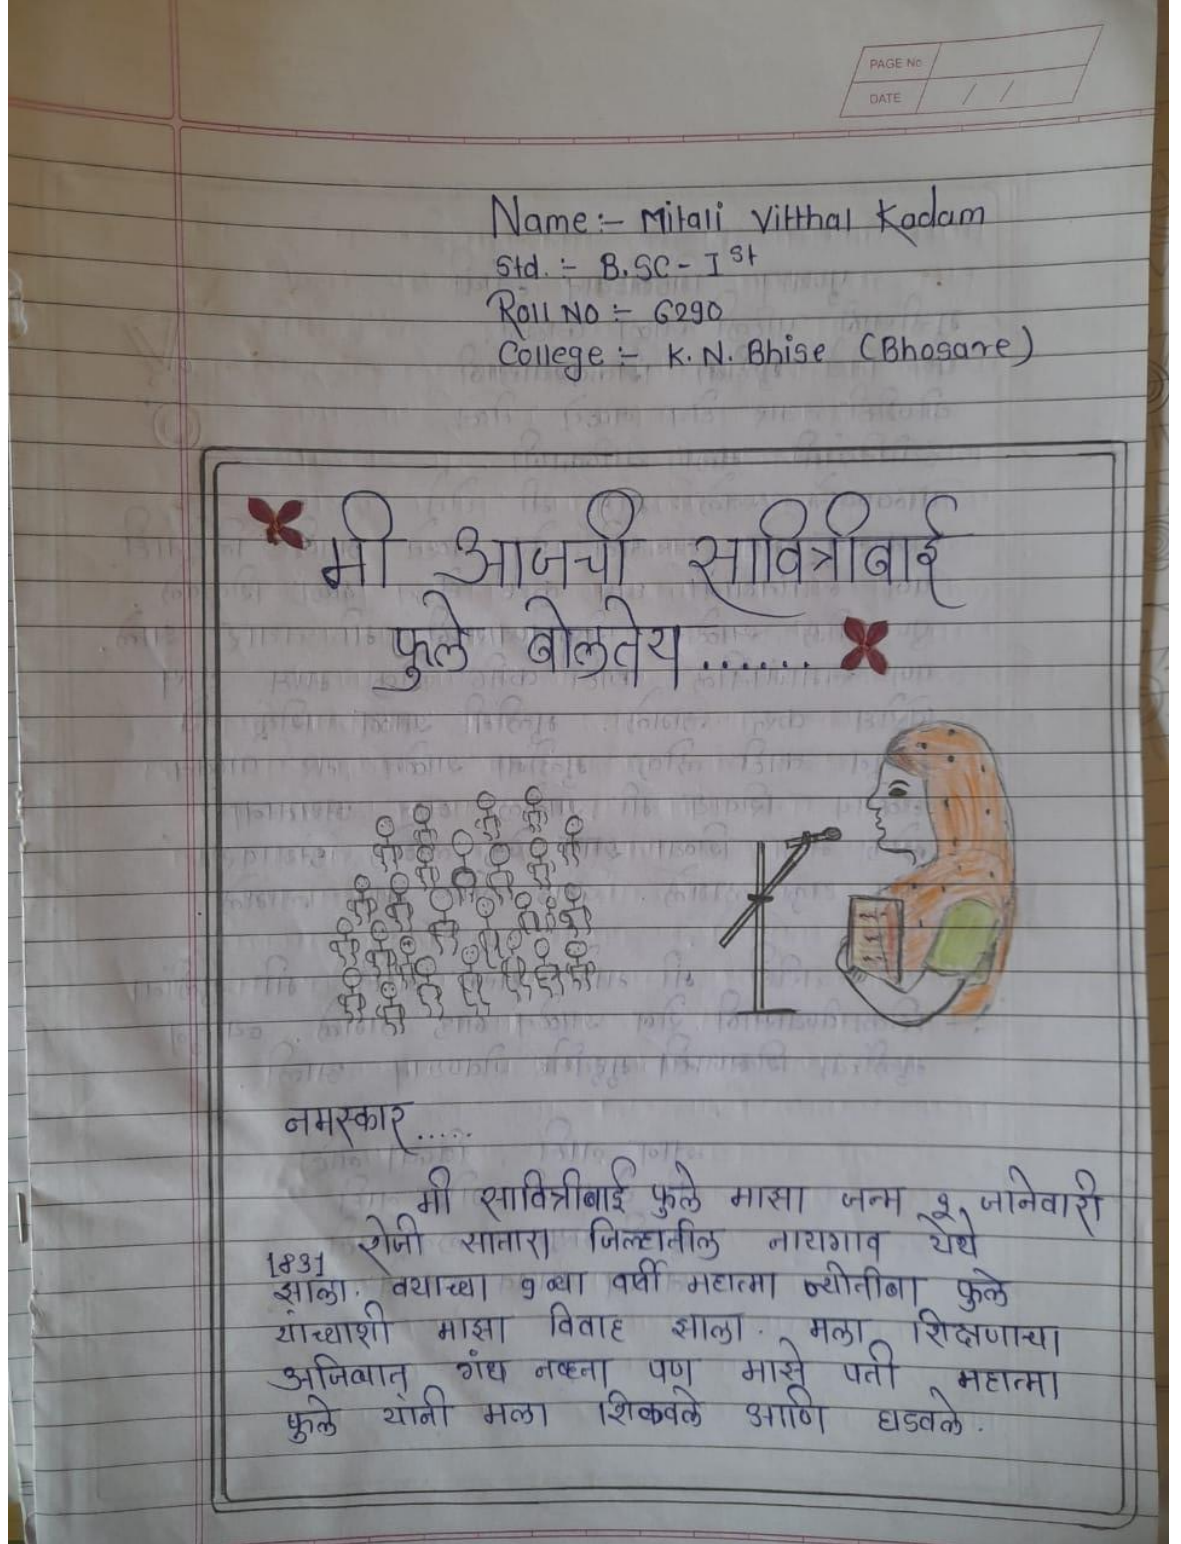 PAGE No
DATE / /
Name :- Mitali Vitthal Kadam
Std. :- B.SC - I st
Roll No :- 6290
College :- K. N. Bhise (Bhosare)
मी आजची सावित्रीबाई
फुले बोलतेय .......
नमस्कार .....
मी सावित्रीबाई फुले माझा जन्म ३ जानेवारी
1831 रोजी सातारा जिल्हातील नायगाव येथे
झाला. वयाच्या ९ व्या वर्षी महात्मा ज्योतीबा फुले
यांच्याशी माझा विवाह झाला. मला शिक्षणाचा
अजिबात गंध नव्हता पण माझे पती महात्मा
फुले यांनी मला शिकवले आणि घडवले.